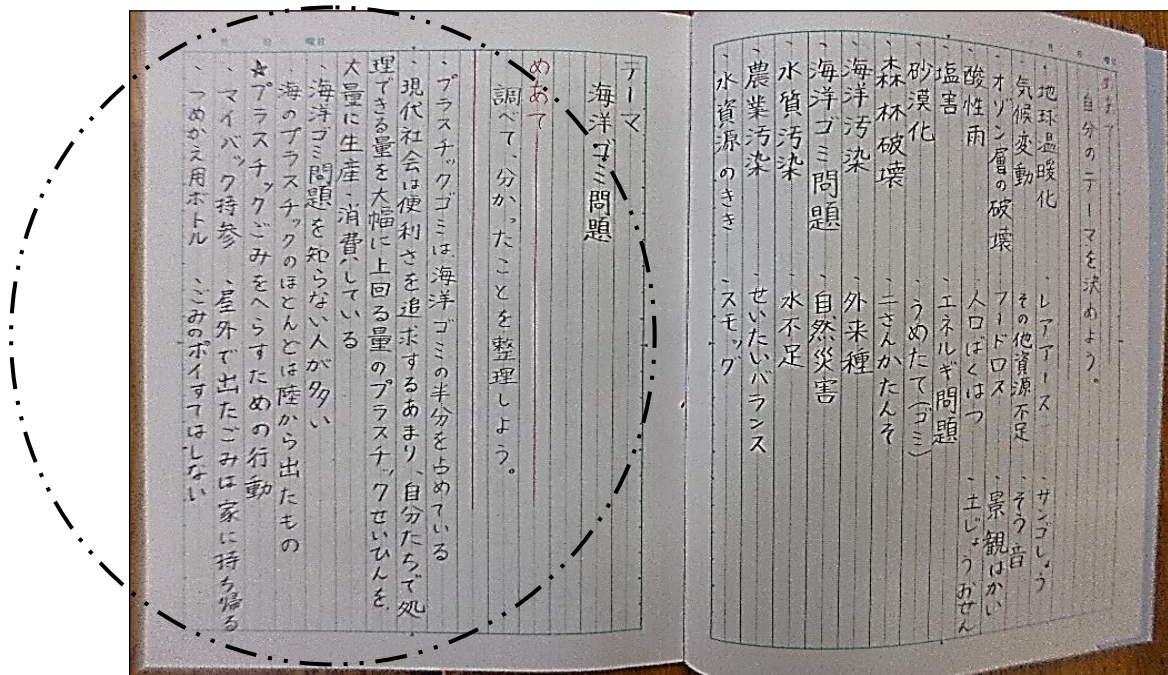 めあて
自分のテーマを決めよう。
・地球温暖化 ・レアアース ・サンゴしょう
・気候変動 その他資源不足 ・そう音
・オゾン層の破壊 フードロス ・景観はかい
・酸性雨 人口ばくはつ ・土じょうおせん
・塩害 ・エネルギ問題
・砂漠化 ・うめたて(ゴミ)
・森林破壊 ・二さんかたんそ
・海洋汚染 ・外来種
・海洋ゴミ問題 ・自然災害
・水質汚染 ・水不足
・農業汚染 ・せいたいバランス
・水資源のきき ・スモッグ
月 日 曜日
テーマ
海洋ゴミ問題
めあて
調べて、分かったことを整理しよう。
・プラスチックゴミは海洋ゴミの半分を占めている
・現代社会は便利さを追求するあまり、自分たちで処
理できる量を大幅に上回る量のプラスチックせいひんを
大量に生産・消費している
・海洋ゴミ問題を知らない人が多い
海のプラスチックのほとんどは陸から出たもの
☆プラスチックごみをへらすための行動
・マイバック持参 ・屋外で出たごみは家に持ち帰る
・つめかえ用ボトル ・ごみのポイすてはしない
月 日 曜日